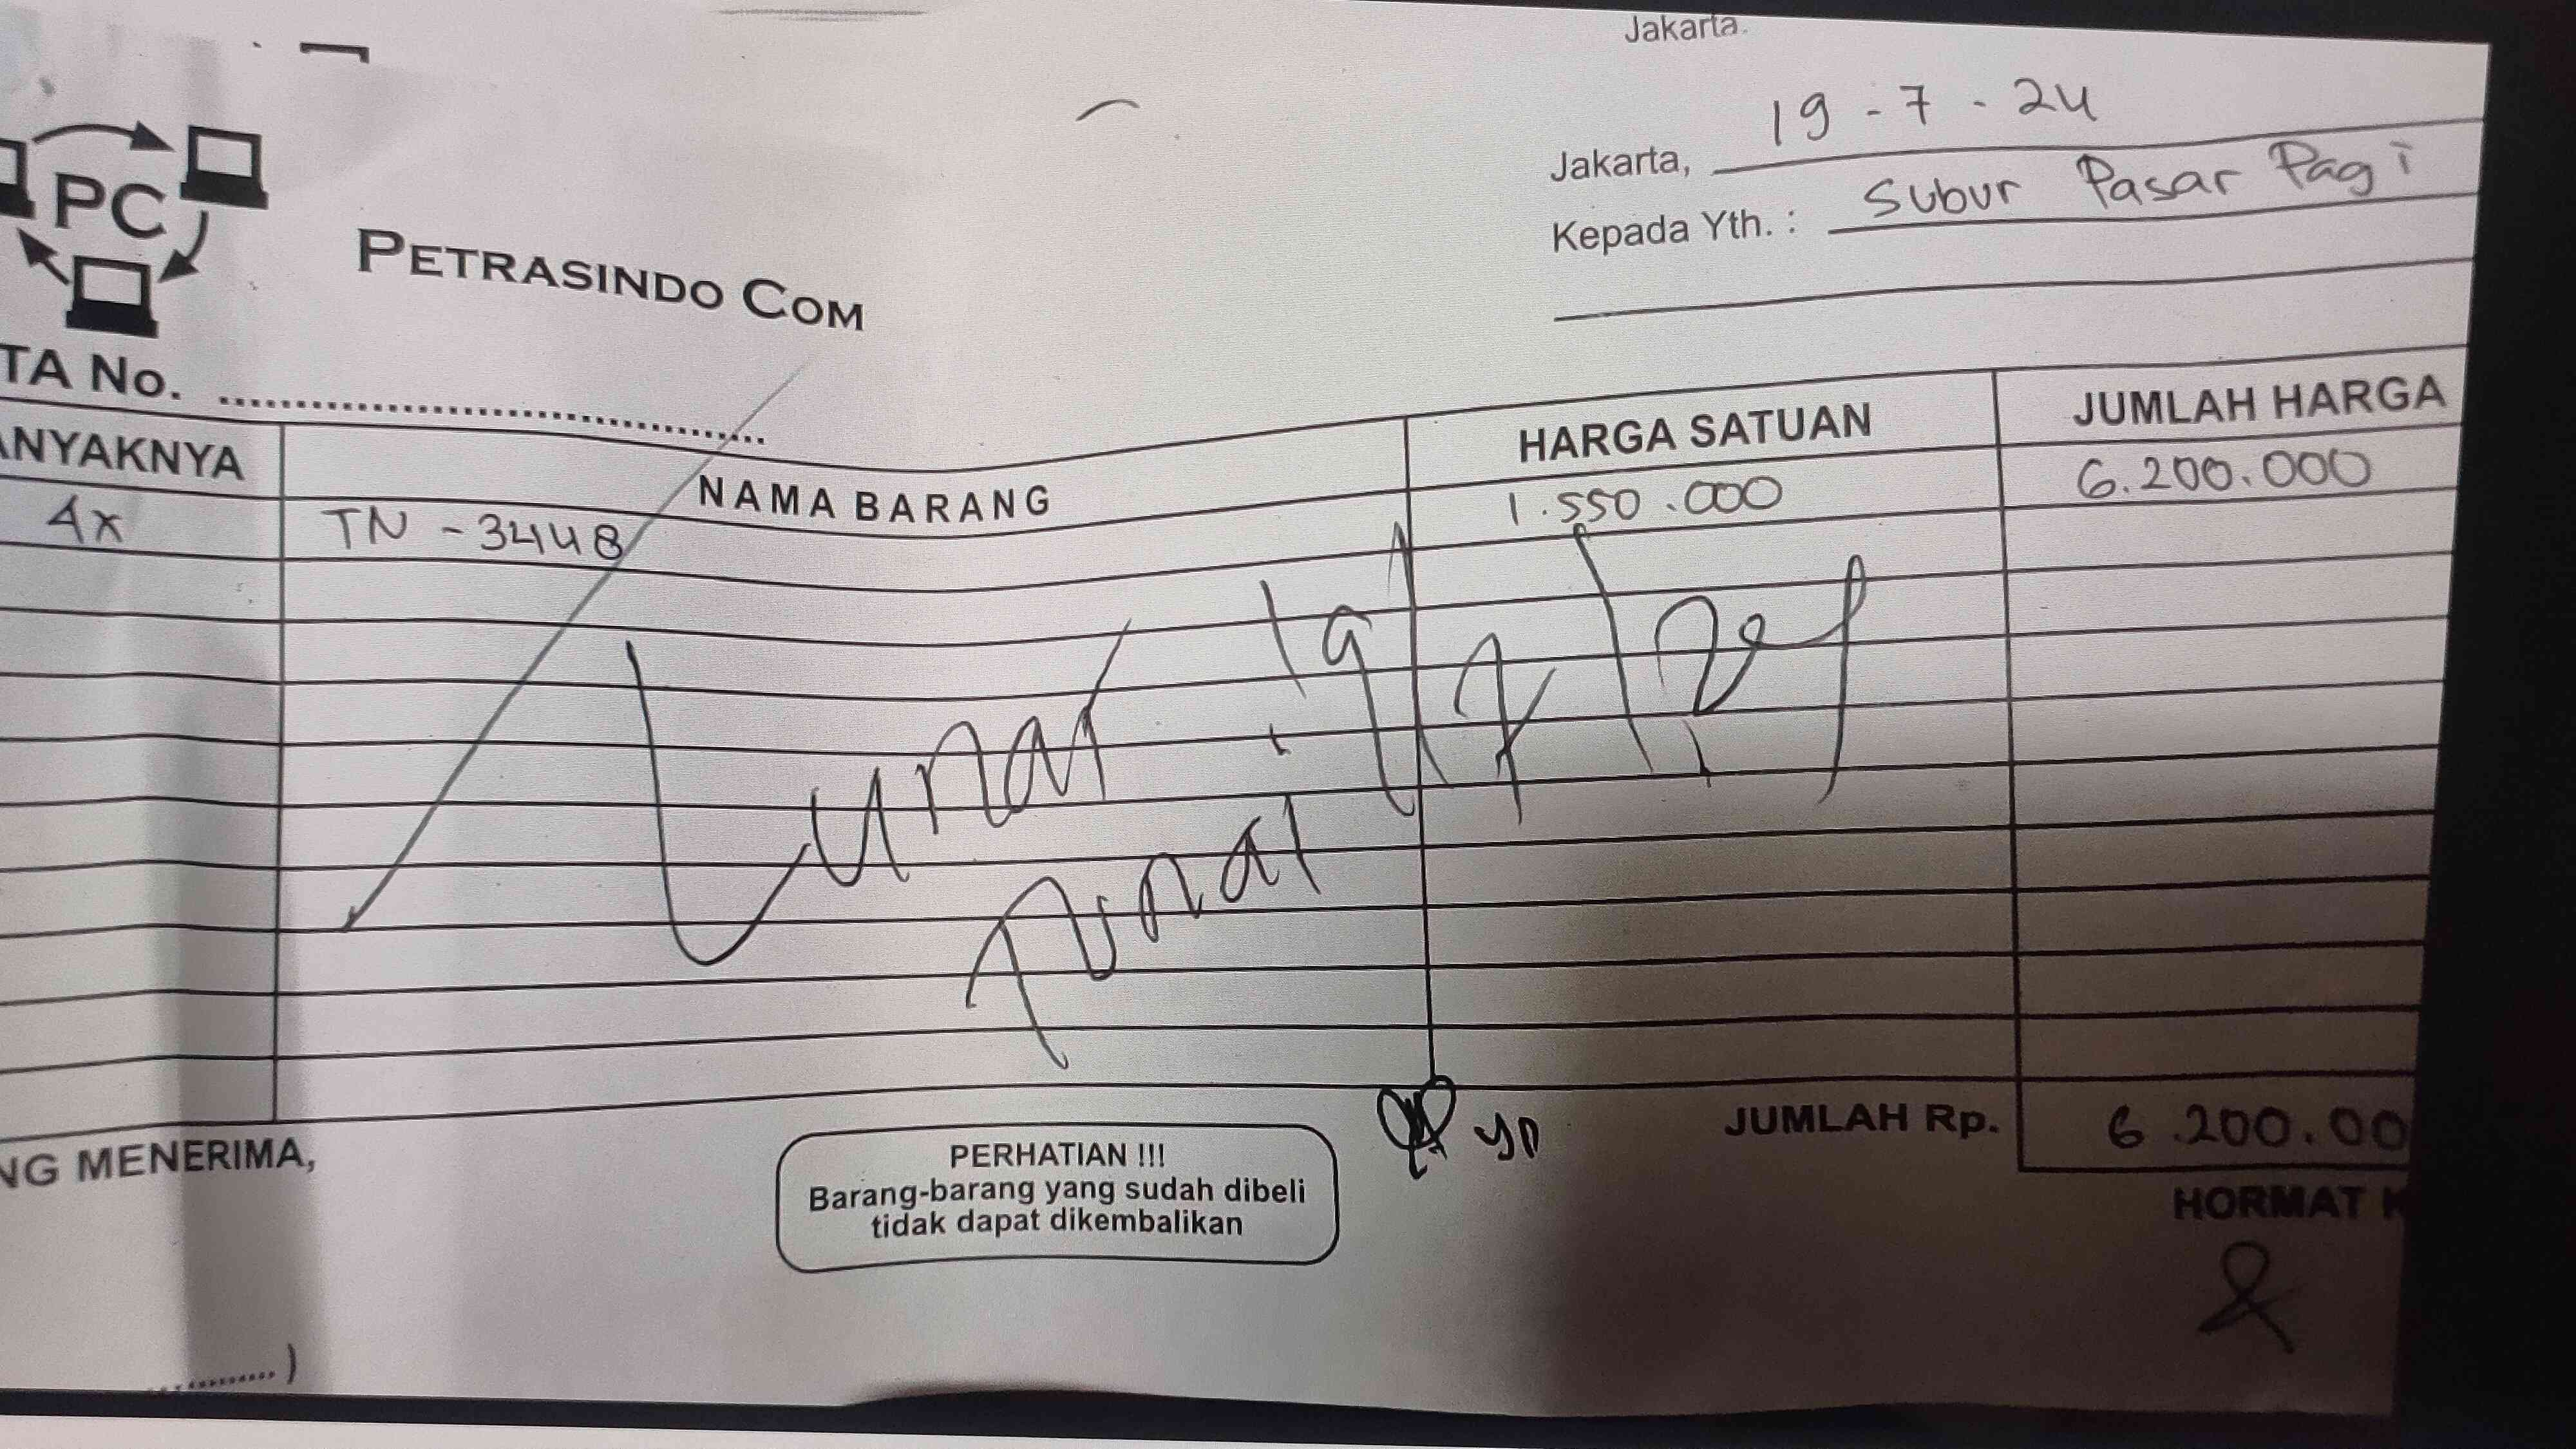 Jakarta.
Jakarta, 19 - 7 - 24
Kepada Yth. : Subur Pasar Pagi
PC
PETRASINDO COM
TA No. ........................................
ANYAKNYA NAMA BARANG HARGA SATUAN JUMLAH HARGA
4x TN - 3448 1.550.000 6.200.000
Lunas 19/7
Tunai
JUMLAH Rp. 6.200.00
NG MENERIMA,
PERHATIAN !!!
Barang-barang yang sudah dibeli
tidak dapat dikembalikan
HORMAT K
............)